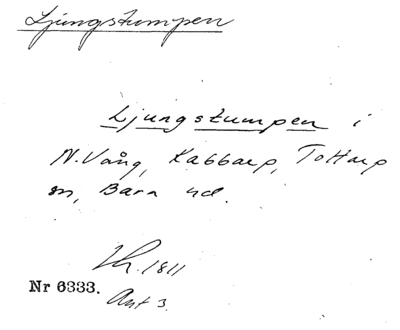 Ljungstumpen
Ljungstumpen i
N. Vång, Kabbarp, Tottarp
sn, Bara hd.
Lh. 1811
Nr 6333.
Ant 3.